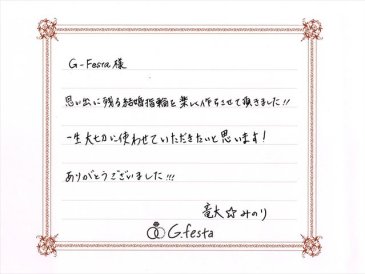 G-Festa 様
思い出に残る結婚指輪を楽しく作らさせて頂きました!!
一生大切に使わせていただきたいと思います!
ありがとうございました!!!
竜太☆みのり
G.festa